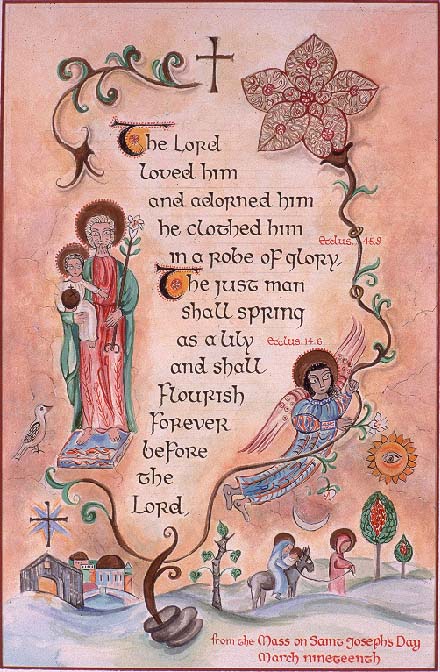 The Lord
loved him
and adorned him
he clothed him
in a robe of glory.
Ecclus. 45.8
The just man
shall spring
as a lily
Ecclus. 14.6
and shall
flourish
forever
before
the
Lord,
from the Mass on Saint Josephs Day
March nineteenth